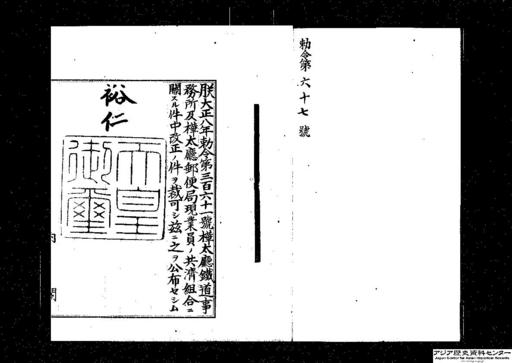 勅令第六十七號
朕大正八年勅令第三百六十一號樺太廳鐵道事
務所及樺太廳郵便局現業員ノ共濟組合ニ
關スル件中改正ノ件ヲ裁可シ茲ニ之ヲ公布セシム
裕仁
天皇御璽
内
閣
アジア歴史資料センター
Japan Center for Asian Historical Records